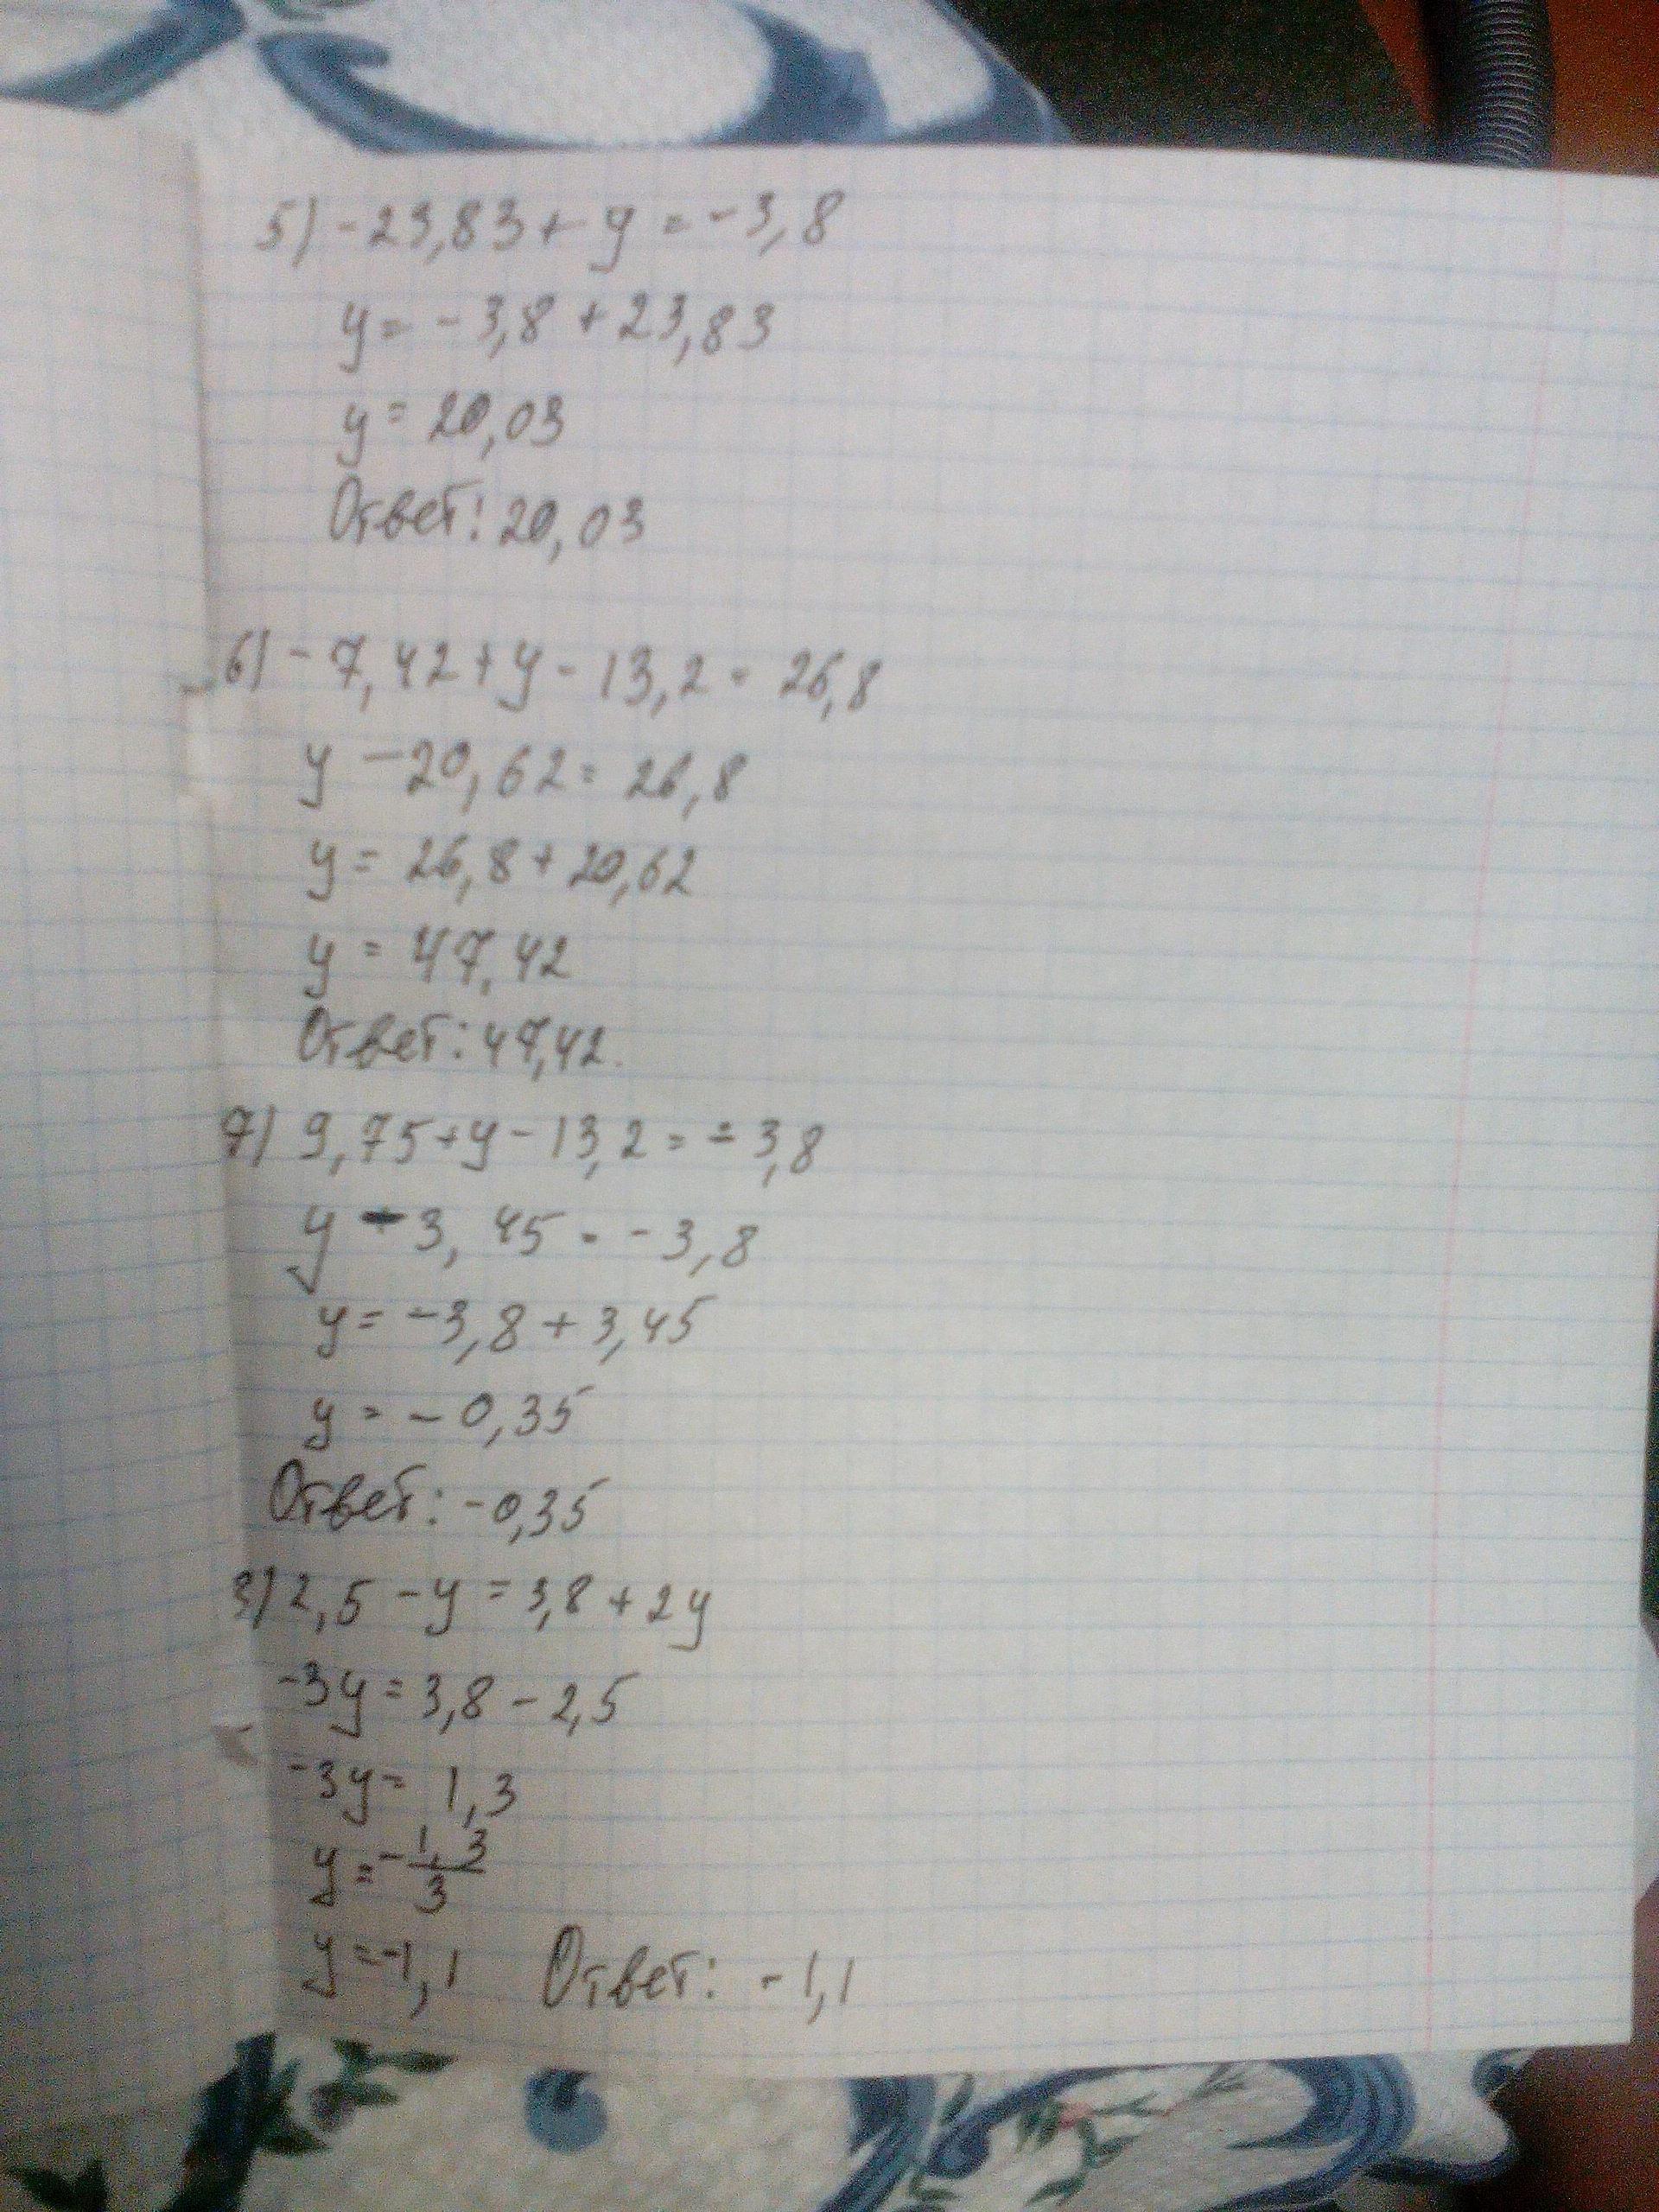 5) -23,83 + y = -3,8
y = -3,8 + 23,83
y = 20,03
Ответ: 20,03
6) -7,42 + y - 13,2 = 26,8
y - 20,62 = 26,8
y = 26,8 + 20,62
y = 47,42
Ответ: 47,42.
7) 9,75 + y - 13,2 = -3,8
y - 3,45 = -3,8
y = -3,8 + 3,45
y = -0,35
Ответ: -0,35
8) 2,5 - y = 3,8 + 2y
-3y = 3,8 - 2,5
-3y = 1,3
y = -1,3/3
y = -1,1 Ответ: -1,1